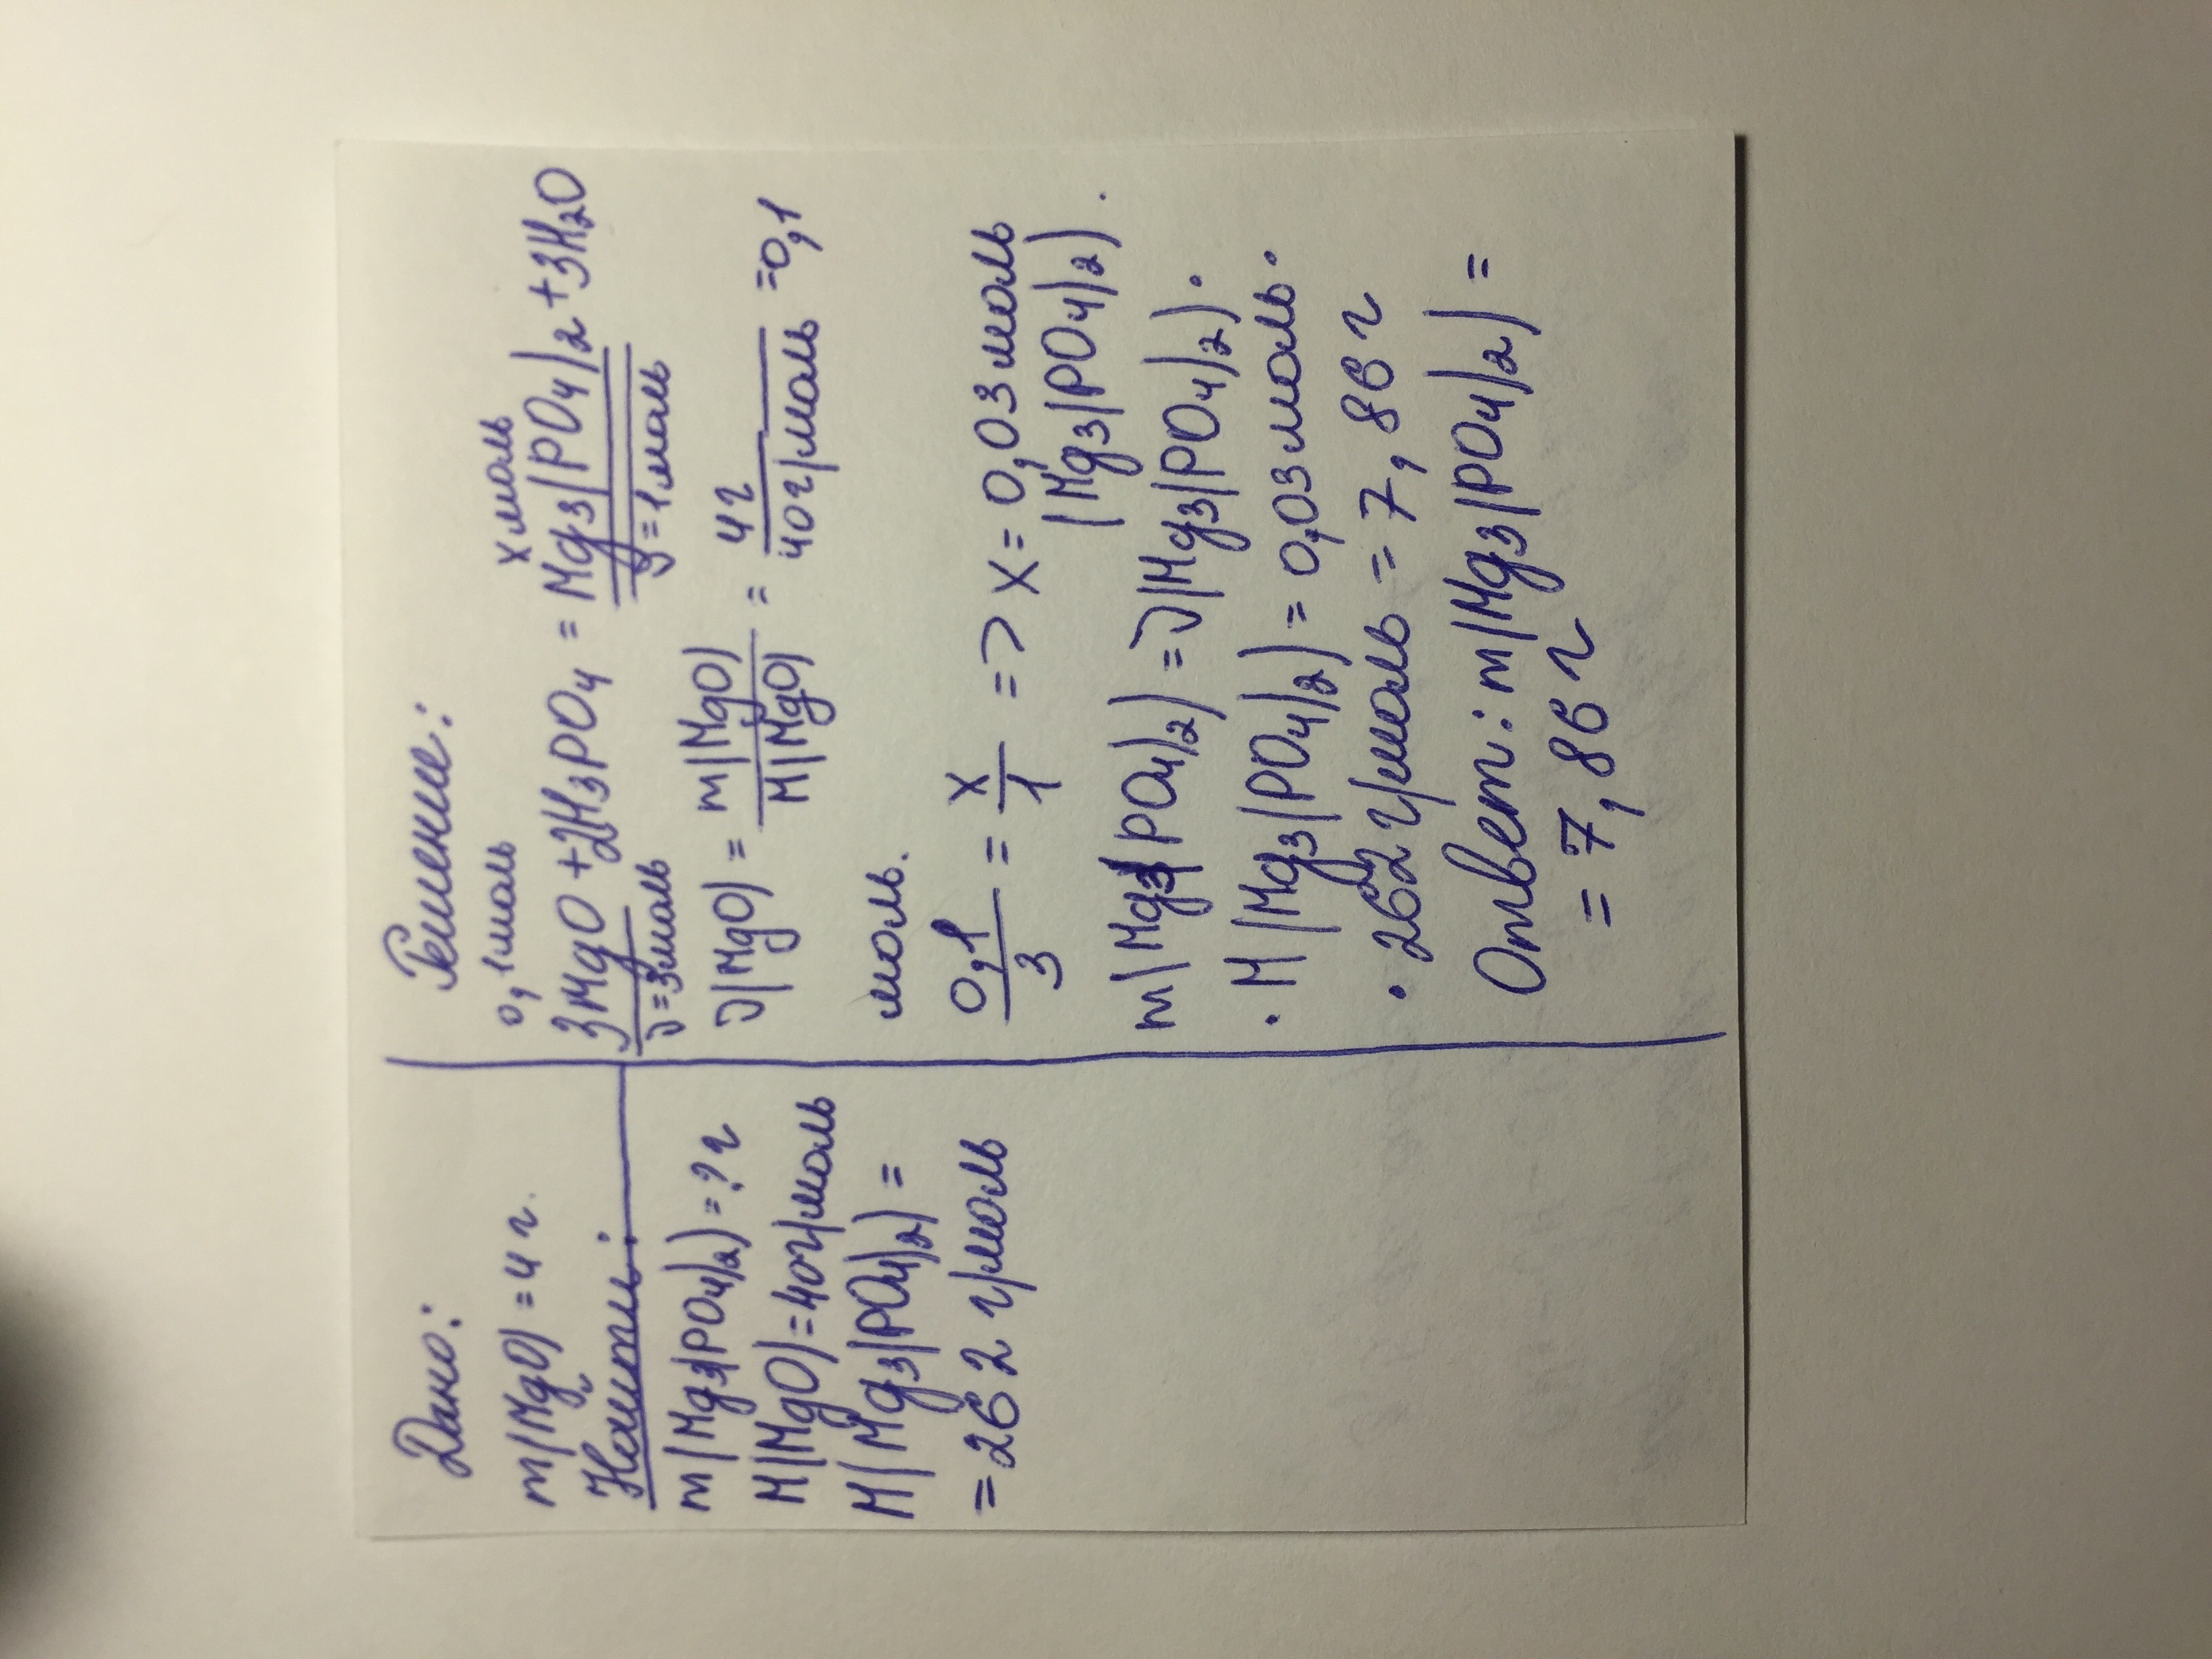 Дано:
m(MgO) = 4 г.
Найти:
m(Mg3(PO4)2) = ? г
M(MgO) = 40 г/моль
M(Mg3(PO4)2) =
= 262 г/моль
Решение:
0,1 моль x моль
3MgO + 2H3PO4 = Mg3(PO4)2 + 3H2O
ν = 3 моль ν = 1 моль
ν(MgO) = m(MgO)/M(MgO) = 4 г/40 г/моль = 0,1
моль.
0,1/3 = x/1 => x = 0,03 моль
(Mg3(PO4)2).
m(Mg3(PO4)2) = ν(Mg3(PO4)2) ·
· M(Mg3(PO4)2) = 0,03 моль ·
· 262 г/моль = 7,86 г
Ответ: m(Mg3(PO4)2) =
= 7,86 г